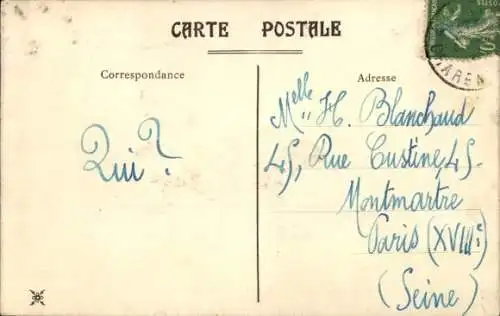 CARTE POSTALE
Correspondance
Adresse
Qui?
Melle H. Blanchaud
45, Rue Custine, 45
Montmartre
Paris (XVIIIe)
(Seine)